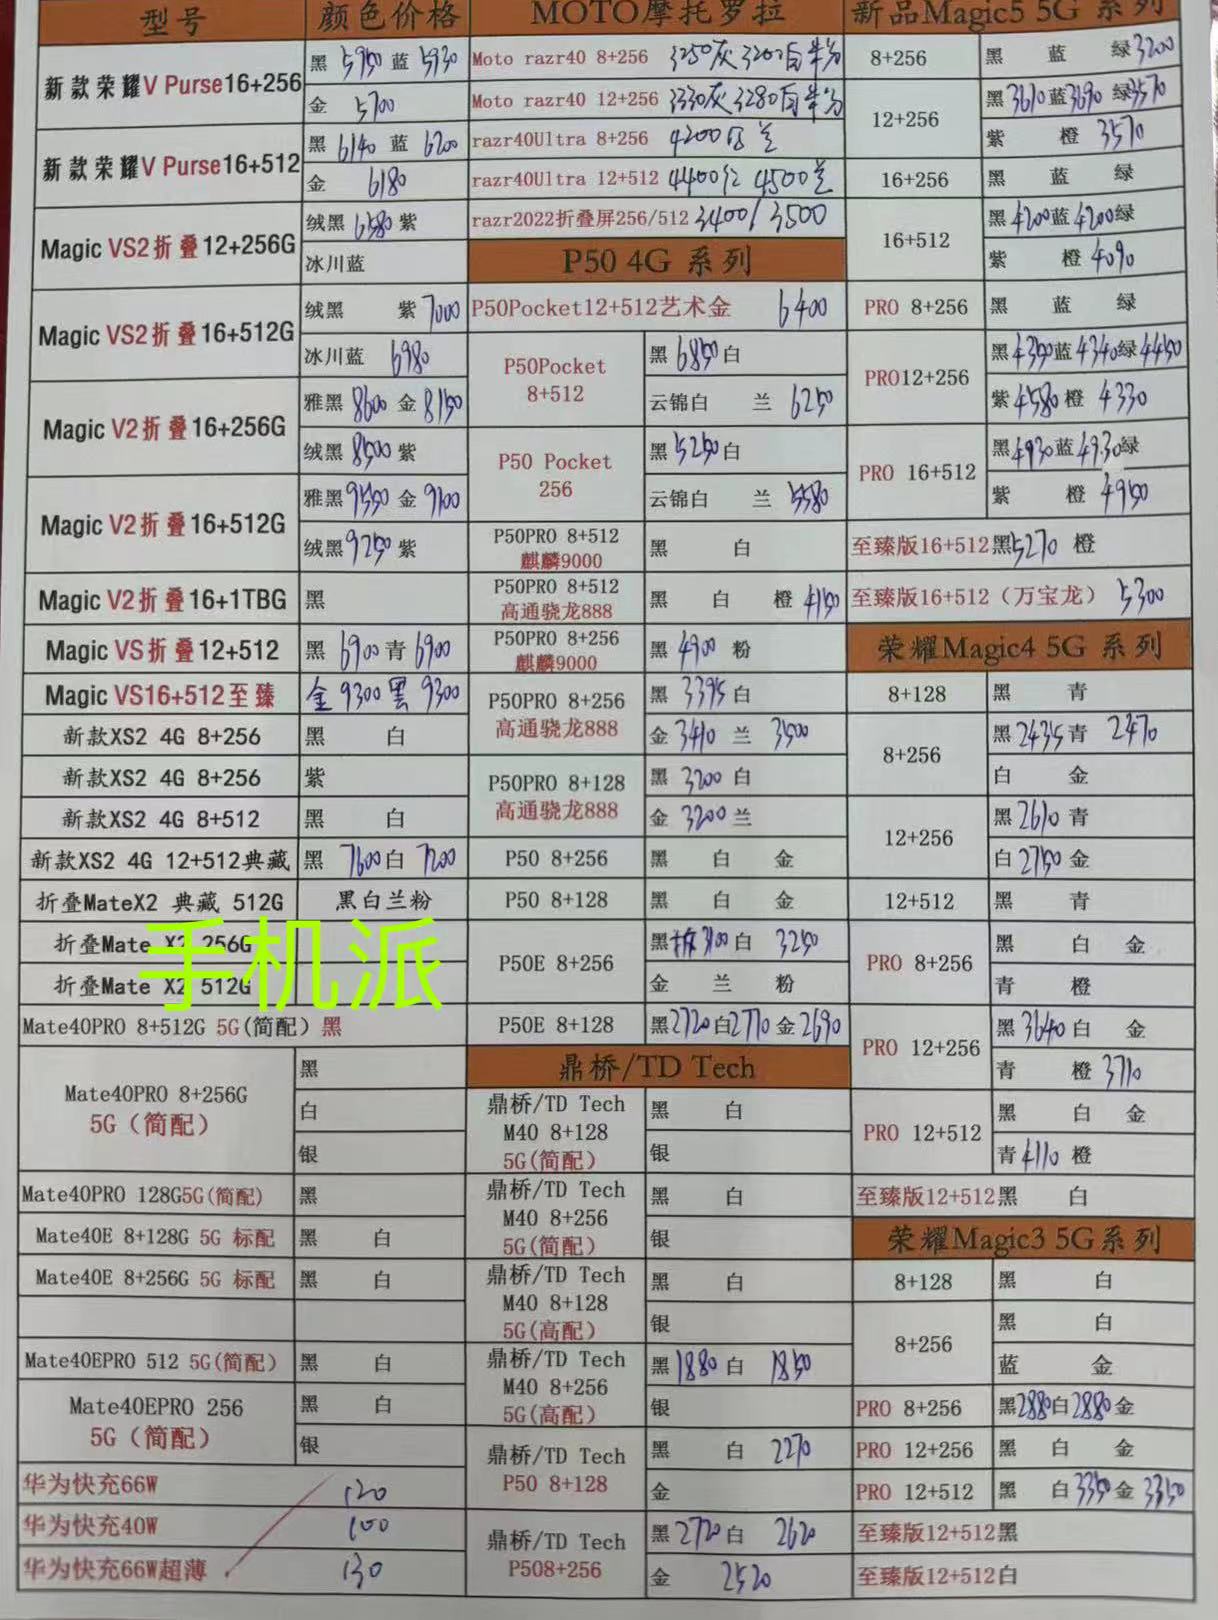 型号 颜色价格
新款荣耀V Purse16+256 黑 5950 蓝 5930
金 5700
新款荣耀V Purse16+512 黑 6140 蓝 6200
金 6180
Magic VS2折叠12+256G 绒黑 6580 紫
冰川蓝
Magic VS2折叠16+512G 绒黑 紫 7000
冰川蓝 6980
Magic V2折叠16+256G 雅黑 8600 金 8150
绒黑 8500 紫
Magic V2折叠16+512G 雅黑 9550 金 9100
绒黑 9250 紫
Magic V2折叠16+1TBG 黑
Magic VS折叠12+512 黑 6900 青 6900
Magic VS16+512至臻 金 9300 黑 9300
新款XS2 4G 8+256 黑 白
新款XS2 4G 8+256 紫
新款XS2 4G 8+512 黑 白
新款XS2 4G 12+512典藏 黑 7600 白 7200
折叠MateX2 典藏 512G 黑白兰粉
折叠Mate X2 256G
折叠Mate X2 512G
手机派
Mate40PRO 8+512G 5G(简配) 黑
Mate40PRO 8+256G
5G (简配)
黑
白
银
Mate40PRO 128G5G(简配) 黑
Mate40E 8+128G 5G 标配 黑 白
Mate40E 8+256G 5G 标配 黑 白
Mate40EPRO 512 5G(简配) 黑 白
Mate40EPRO 256
5G (简配)
黑 白
银
华为快充66W 120
华为快充40W 100
华为快充66W超薄 130
MOTO摩托罗拉
Moto razr40 8+256 3250灰 3200白
Moto razr40 12+256 3330灰 3280白
razr40Ultra 8+256 4200
razr40Ultra 12+512 4400红 4500兰
razr2022折叠屏256/512 3400/3500
P50 4G 系列
P50Pocket12+512艺术金 6400
P50Pocket
8+512
黑 6850 白
云锦白 兰 6250
P50 Pocket
256
黑 5250 白
云锦白 兰 5580
P50PRO 8+512
麒麟9000
黑 白
P50PRO 8+512
高通骁龙888
黑 白 橙 4150
P50PRO 8+256
麒麟9000
黑 4900 粉
P50PRO 8+256
高通骁龙888
黑 3395 白
金 3410 兰 3500
P50PRO 8+128
高通骁龙888
黑 3200 白
金 3200 兰
P50 8+256 黑 白 金
P50 8+128 黑 白 金
P50E 8+256 黑 拆3100 白 3250
金 兰 粉
P50E 8+128 黑2720 白2710 金2690
鼎桥/TD Tech
鼎桥/TD Tech
M40 8+128
5G(简配)
黑 白
银
鼎桥/TD Tech
M40 8+256
5G(简配)
黑 白
银
鼎桥/TD Tech
M40 8+128
5G(高配)
黑 白
银
鼎桥/TD Tech
M40 8+256
5G(高配)
黑 1880 白 1850
银
鼎桥/TD Tech
P50 8+128
黑 白 2270
金
鼎桥/TD Tech
P508+256
黑 2720 白 2620
金 2520
新品Magic5 5G 系列
8+256 黑 蓝 绿 3200
12+256 黑3610 蓝3690 绿3570
紫 橙 3570
16+256 黑 蓝 绿
16+512 黑4200 蓝4200 绿
紫 橙 4090
PRO 8+256 黑 蓝 绿
PRO12+256 黑4350 蓝4340 绿4450
紫4580 橙 4330
PRO 16+512 黑4930 蓝4930 绿
紫 橙 4950
至臻版16+512黑5270 橙
至臻版16+512 (万宝龙) 5300
荣耀Magic4 5G 系列
8+128 黑 青
8+256 黑2435 青 2470
白 金
12+256 黑2610 青
白2750 金
12+512 黑 青
PRO 8+256 黑 白 金
青 橙
PRO 12+256 黑3640 白 金
青 橙 3710
PRO 12+512 黑 白 金
青4110 橙
至臻版12+512黑 白
荣耀Magic3 5G系列
8+128 黑 白
8+256 黑 白
蓝 金
PRO 8+256 黑2880 白2880 金
PRO 12+256 黑 白 金
PRO 12+512 黑 白3350 金 3350
至臻版12+512黑
至臻版12+512白